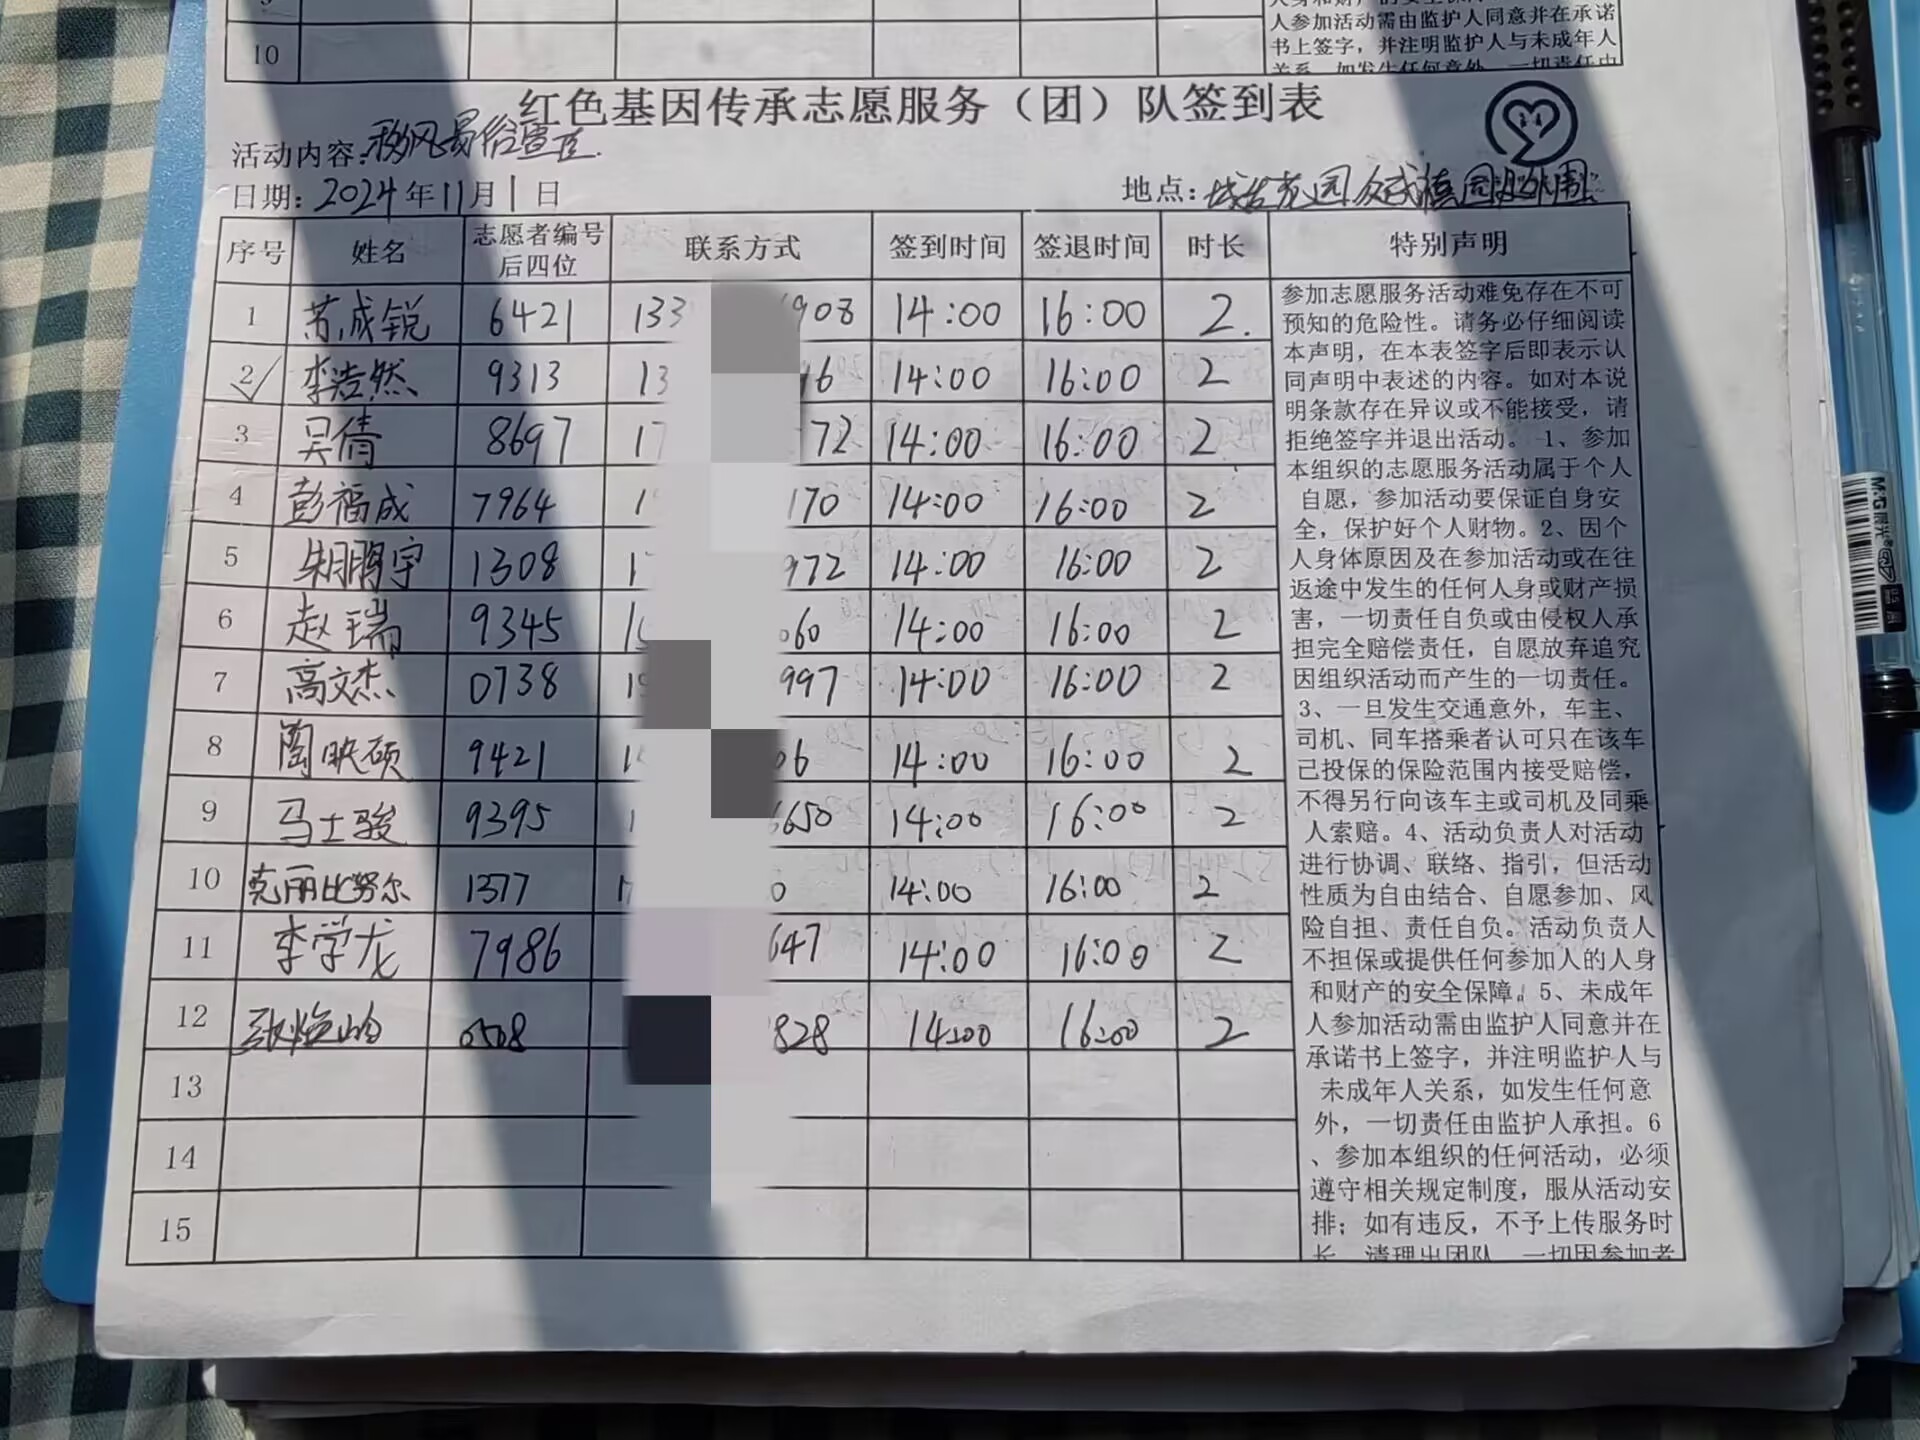 10
人参加活动需由监护人同意并在承诺
书上签字，并注明监护人与未成年人
关系，如发生任何意外，一切责任由
红色基因传承志愿服务（团）队签到表
活动内容：移风易俗宣传
日期：2024年11月1日
地点：
序号 姓名 志愿者编号后四位 联系方式 签到时间 签退时间 时长 特别声明
1 苏成锐 6421 133 908 14:00 16:00 2.
2 李浩然 9313 13 16 14:00 16:00 2
3 吴倩 8697 17 172 14:00 16:00 2
4 彭福成 7964 1 170 14:00 16:00 2
5 朱鹏宇 1308 1 972 14:00 16:00 2
6 赵瑞 9345 1 060 14:00 16:00 2
7 高文杰 0738 1 997 14:00 16:00 2
8 陶映硕 9421 1 06 14:00 16:00 2
9 马士骏 9395 1 650 14:00 16:00 2
10 克丽比努尔 1377 1 0 14:00 16:00 2
11 李学龙 7986 647 14:00 16:00 2
12 0508 828 14:00 16:00 2
13
14
15
参加志愿服务活动难免存在不可
预知的危险性。请务必仔细阅读
本声明，在本表签字后即表示认
同声明中表述的内容。如对本说
明条款存在异议或不能接受，请
拒绝签字并退出活动。1、参加
本组织的志愿服务活动属于个人
自愿，参加活动要保证自身安
全，保护好个人财物。2、因个
人身体原因及在参加活动或在往
返途中发生的任何人身或财产损
害，一切责任自负或由侵权人承
担完全赔偿责任，自愿放弃追究
因组织活动而产生的一切责任。
3、一旦发生交通意外，车主、
司机、同车搭乘者认可只在该车
已投保的保险范围内接受赔偿，
不得另行向该车主或司机及同乘
人索赔。4、活动负责人对活动
进行协调、联络、指引，但活动
性质为自由结合、自愿参加、风
险自担、责任自负。活动负责人
不担保或提供任何参加人的人身
和财产的安全保障。5、未成年
人参加活动需由监护人同意并在
承诺书上签字，并注明监护人与
未成年人关系，如发生任何意
外，一切责任由监护人承担。6
、参加本组织的任何活动，必须
遵守相关规定制度，服从活动安
排；如有违反，不予上传服务时
长，清理出团队，一切因参加者
M&G 晨光